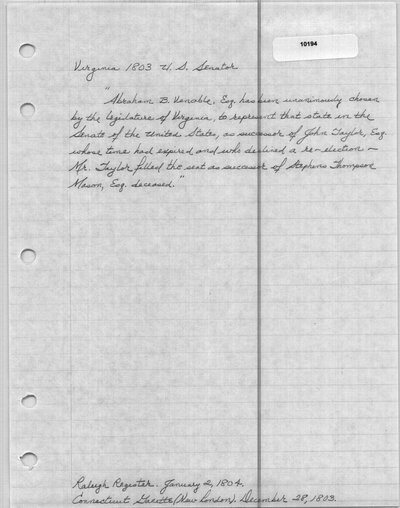 10194
Virginia 1803 U. S. Senator
"Abraham B. Venable, Esq. has been unanimously chosen
by the legislature of Virginia, to represent that state in the
Senate of the United States, as successor of John Taylor, Esq.
whose time had expired and who declined a re-election —
Mr. Taylor filled the seat as successor of Stephens Thompson
Mason, Esq. deceased."
Raleigh Register. January 2, 1804.
Connecticut Gazette (New London). December 28, 1803.